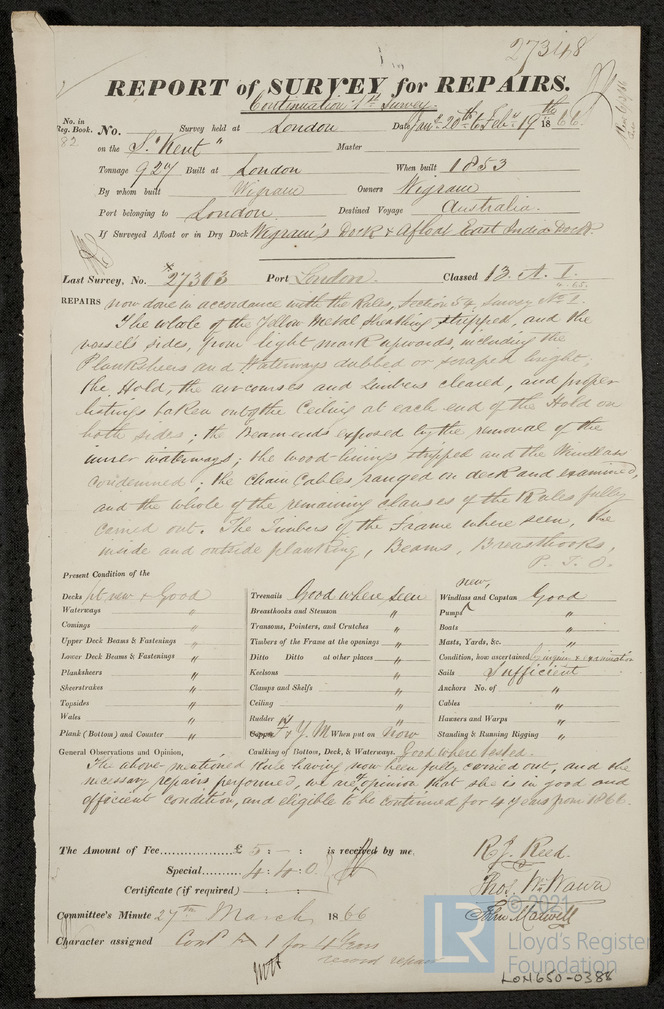 27348
REPORT of SURVEY for REPAIRS.
Continuation 1st Survey
No. in Reg. Book. No. Survey held at London Date Jany 20th to Feby 19th 1866
82 on the S. "Kent" Master
Tonnage 927 Built at London When built 1853
By whom built Wigram Owners Wigram
Port belonging to London Destined Voyage Australia.
If Surveyed Afloat or in Dry Dock Wigram's Dock & Afloat East India Dock
Last Survey, No. 27303 Port London. Classed 13. A. 1.
REPAIRS now done in accordance with the Rules, Section 54, Survey No 1.
The whole of the Yellow Metal Sheathing stripped, and the
vessel's sides, from light mark upwards, including the
Planksheers and Waterways dubbed or scraped bright;
the Hold, the aircourses and Limbers cleared, and proper
listings taken out of the Ceiling at each end of the Hold on
both sides; the Beam ends exposed by the removal of the
inner waterways; the wood-linings stripped and the Windlass
condemned; the Chain Cables ranged on deck and examined,
and the whole of the remaining clauses of the Rules fully
carried out. The Timbers of the Frame where seen, the
inside and outside planking, Beams, Breasthooks,
P. T. O.
Present Condition of the
Decks pt new & Good Treenails Good where seen Windlass and Capstan new, Good
Waterways " Breasthooks and Stemson " Pumps "
Comings " Transoms, Pointers, and Crutches " Boats "
Upper Deck Beams & Fastenings " Timbers of the Frame at the openings " Masts, Yards, &c. "
Lower Deck Beams & Fastenings " Ditto Ditto at other places " Condition, how ascertained by inquiry & examination
Planksheers " Keelsons " Sails Sufficient
Sheerstrakes " Clamps and Shelfs " Anchors No. of "
Topsides " Ceiling " Cables "
Wales " Rudder " Hawsers and Warps "
Plank (Bottom) and Counter " Copper Y. M When put on Now Standing & Running Rigging "
General Observations and Opinion, Caulking of Bottom, Deck, & Waterways. Good where tested.
The above-mentioned Rule having now been fully carried out, and the
necessary repairs performed, we are of opinion that she is in good and
efficient condition, and eligible to be continued for 4 years from 1866.
The Amount of Fee £ 5 : - : is received by me.
R. J. Reed.
Special 4 . 4 . 0
Thos. Wm. Wawn
Certificate (if required) - : - :
John Maxwell
Committee's Minute 27th March 1866
Character assigned Contd A 1 for 4 Years
record repairs
© 2021
LR
Lloyd's Register
Foundation
LON650-0388